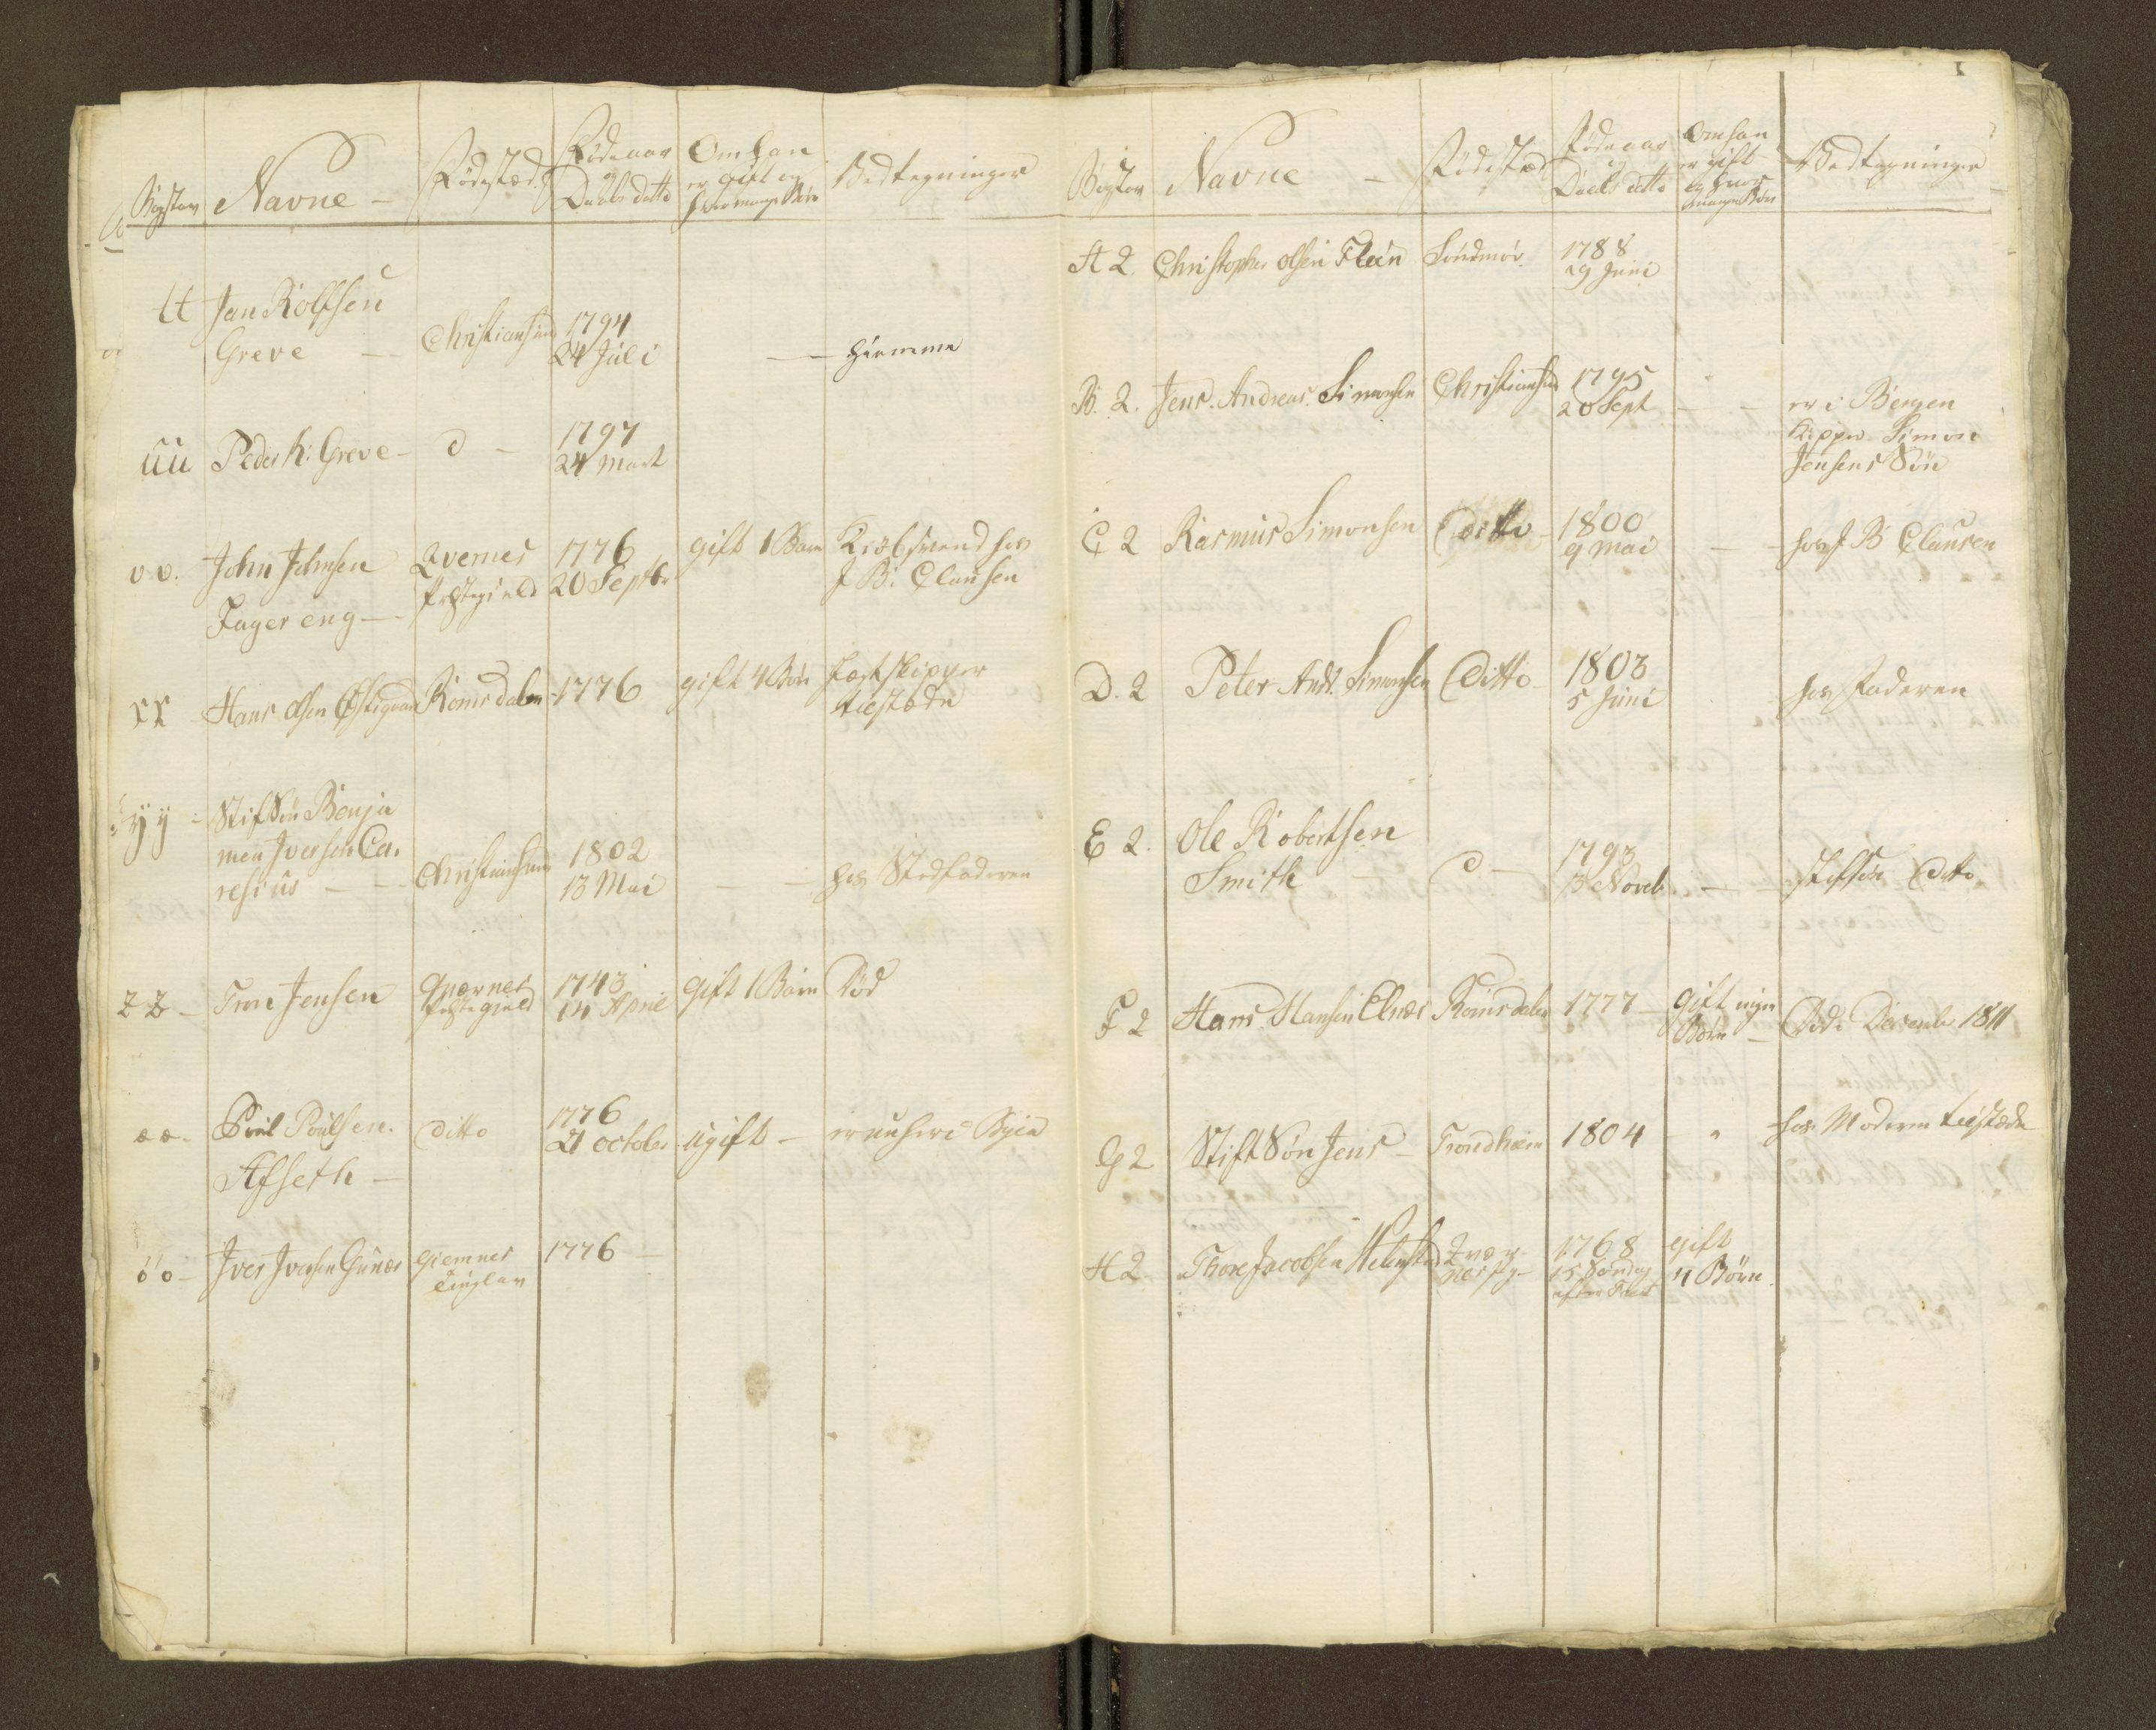 Bogstav Navne - Fødested Fødeaar og Daabs datto Om han er gift og hvor mange Børn Bedtegninger
tt Jan Rolfsen
Greve - Christiansund 1794
24 Juli - hiemme
üü Peder R: Greve - d - 1797
24 Mart
vv. John Johnsen
Fager eng - Qvernes
Præstegield 1776
20 Septbr gift 1 Barn Kiøbsvend hos
J B: Clausen
xx Hans Olsen Romsdalen - 1776 gift 4 Børn Jægtskipper
tilstæde
yy - Stifsøn Benja
men Iversen Ca.
resius - Christiansund 1802
13 Mai - hos Stedfaderen
zz - Tron Jensen Qvernes
Præstegield 1743
14 April gift 1 Barn Død
ææ. Poul Poulsen.
Afseth - ditto 1776
21 october ugift - er unseri Byen
öo - Iver Iversen Gimnes Giemnes
Tinglav 1776 -
Bogstav Navne - Fødested Fødeaar og Daabs ditto Om han er gift og hvor mange Børn Bedtegninger
A 2 Christopher Olsen Flein Söndmör 1788
29 Juni
B. 2. Jens. Andreas. Simonsen Christiansund 1795
20 Sept - er i Bergen
Skipper Simon
Jensens Søn
C 2 Rasmus Simonsen Ditto 1800
9 Mai - hos J B Clausen
D. 2 Peter Andr. Simonsen Ditto 1803
5 Juni hos Faderen
E 2. Ole Robertsen
Smith d - 1793
13 Novcb. - Stifsøn Ditto
F 2 Hans Hansen Elnæs Romsdalen 1777 - gift ingen
Børn - Døde December 1811
G 2 Stift Søn Jens - Trondhiem 1804 " hos Moderen tilstæde
H 2 Thore Jacobsen Qvær-
nes pg- 1768
15 Søndag
efter Trin gift
4 Børn